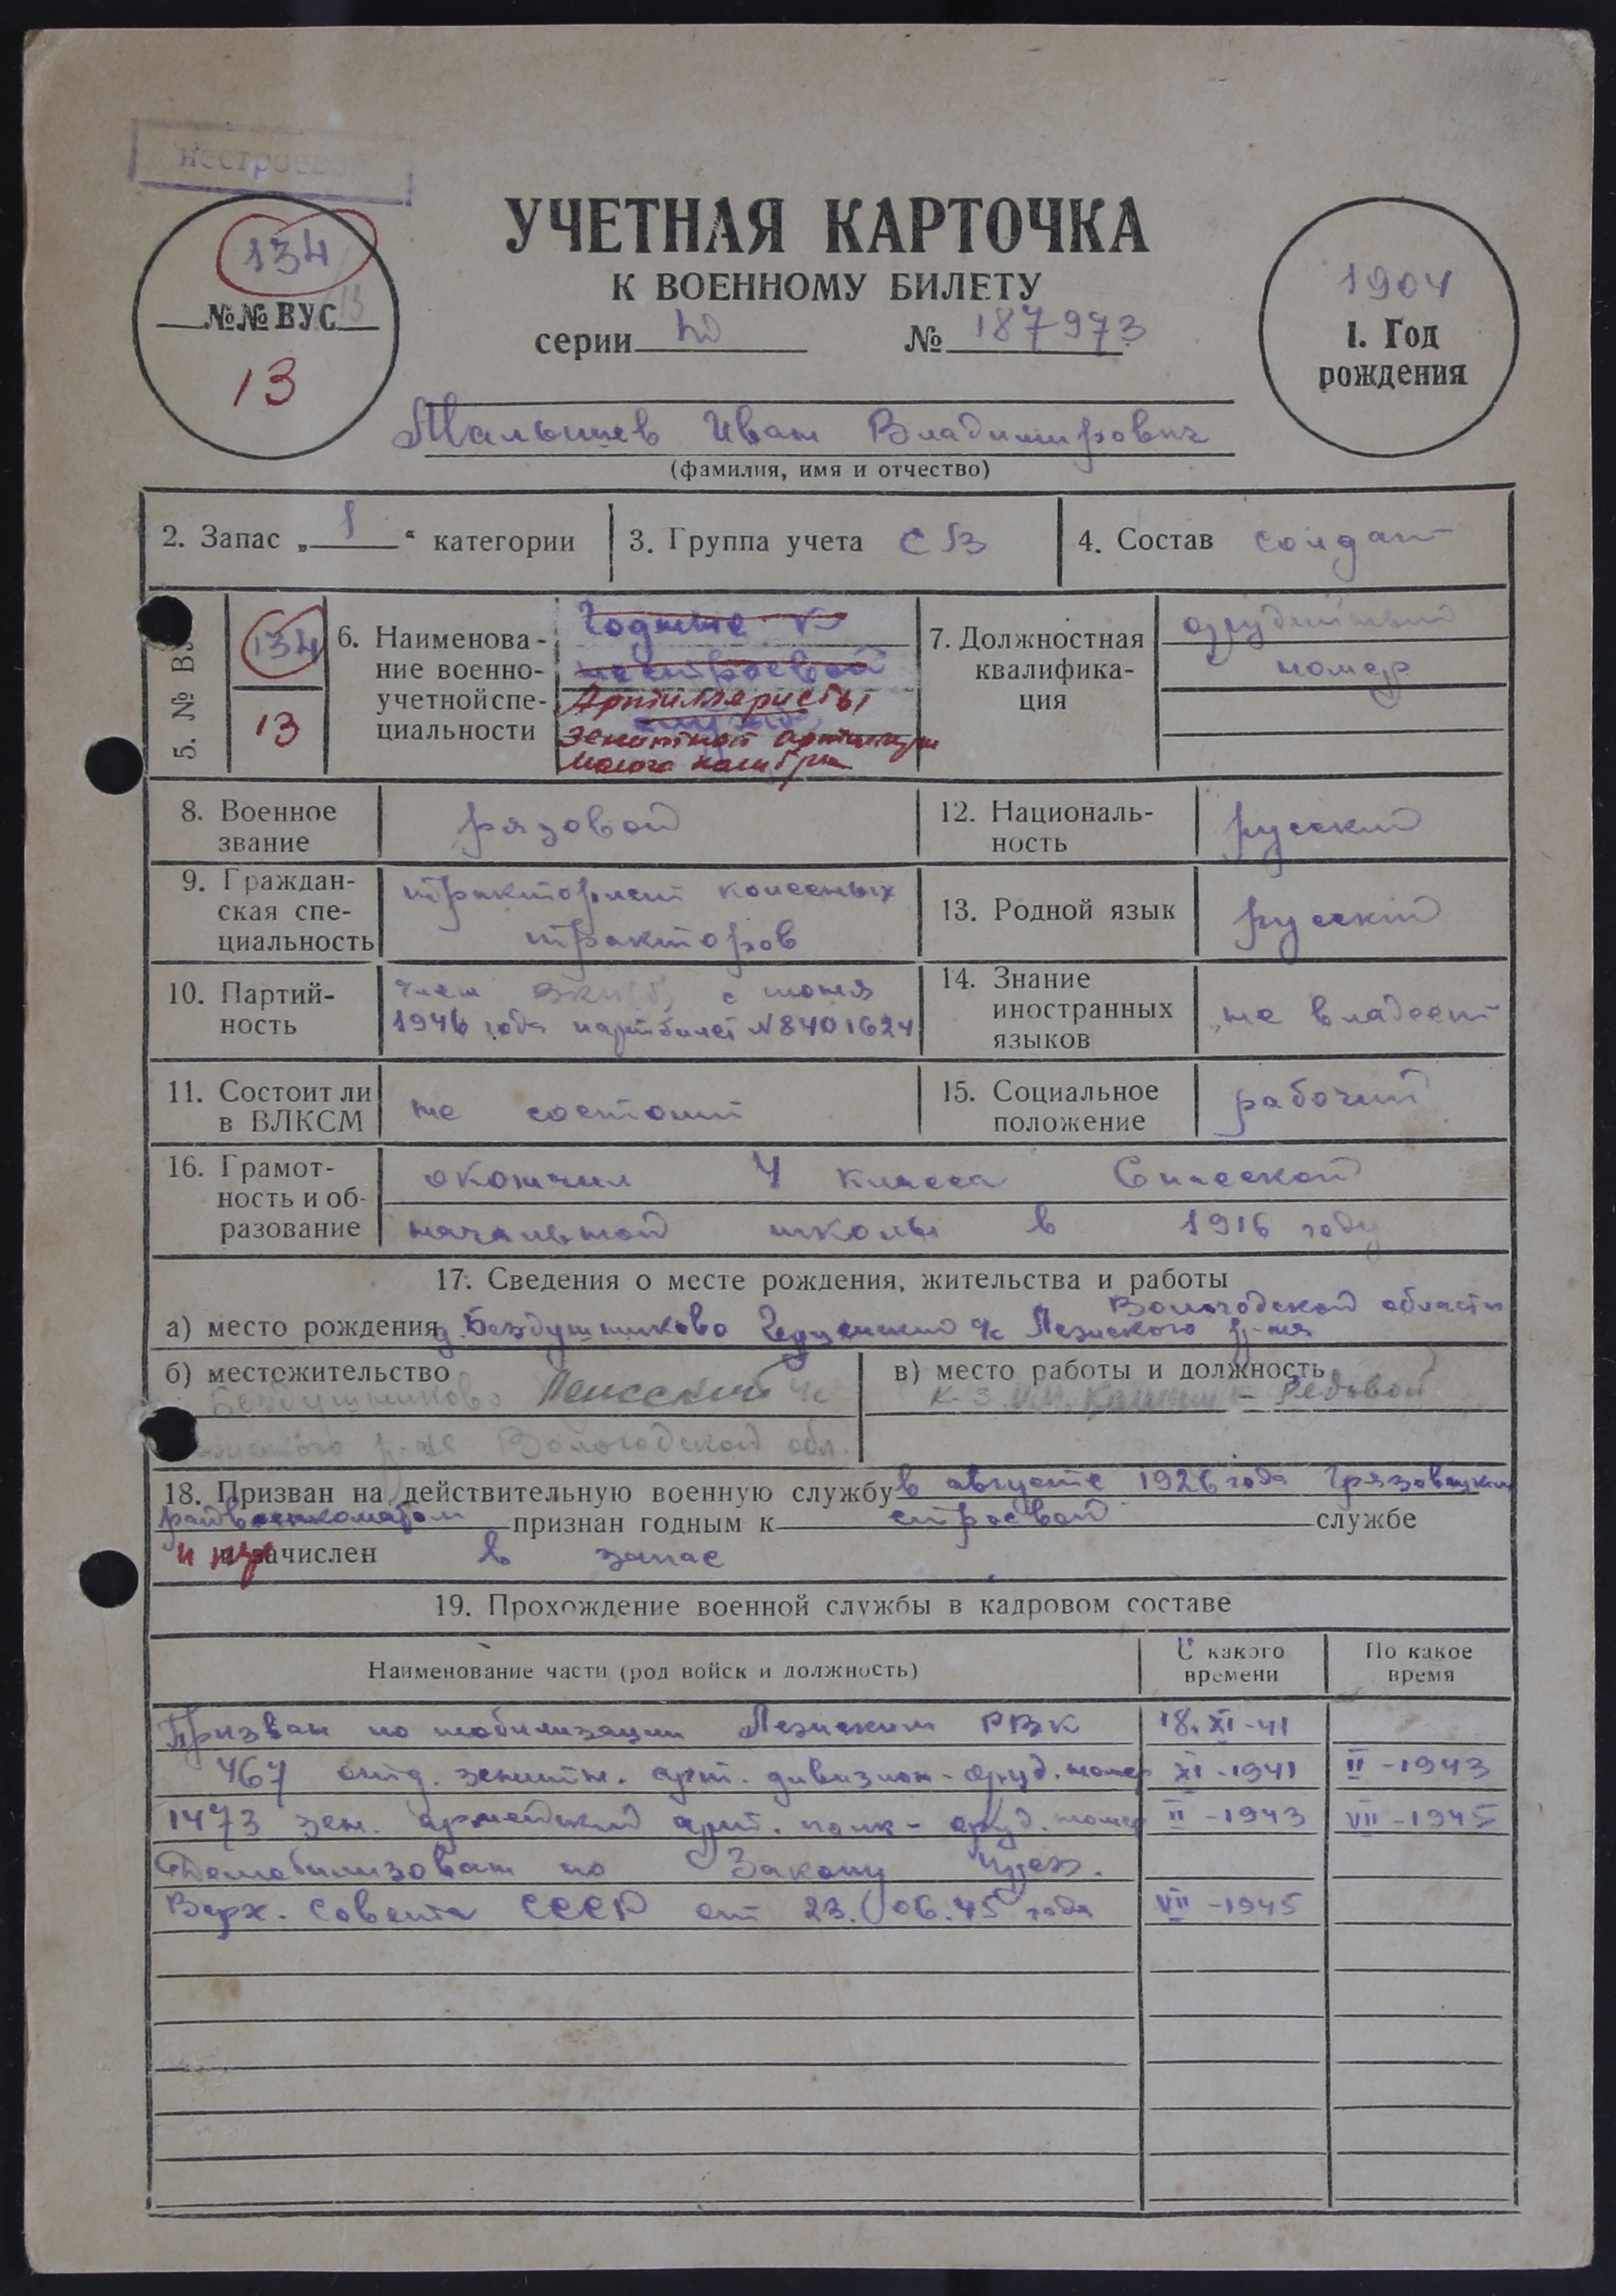 нестроевой
134
№№ ВУС
13
УЧЕТНАЯ КАРТОЧКА
К ВОЕННОМУ БИЛЕТУ
серии № 187973
1904
1. Год
рождения
Малышев Иван Владимирович
(фамилия, имя и отчество)
2. Запас „ 1 “ категории
3. Группа учета СВ
4. Состав солдат
5. № ВУ
134
13
6. Наименова-
ние военно-
учетной спе-
циальности
Годные к
нестроевой
Артиллеристы
зенитной артиллерии
малого калибра
7. Должностная
квалифика-
ция
орудийный
номер
8. Военное
звание
рядовой
12. Националь-
ность
русский
9. Граждан-
ская спе-
циальность
тракторист колесных
тракторов
13. Родной язык
русский
10. Партий-
ность
член ВКП(б) с июня
1946 года партбилет № 8401624
14. Знание
иностранных
языков
не владеет
11. Состоит ли
в ВЛКСМ
не состоит
15. Социальное
положение
рабочий
16. Грамот-
ность и об-
разование
окончил 4 класса Спасской
начальной школы в 1916 году
17. Сведения о месте рождения, жительства и работы
Вологодской области
а) место рождения д Бездушниково с/с Лежского р-на
б) местожительство
Бездушниково с/с
р-на Вологодской обл.
в) место работы и должность
к-з им. Калинина - Рядовой
18. Призван на действительную военную службу в августе 1926 года Грязовецким
райвоенкоматом признан годным к строевой службе
и зачислен в запас
19. Прохождение военной службы в кадровом составе
Наименование части (род войск и должность)
С какого
времени
По какое
время
Призван по мобилизации Лежским РВК 18.XI-41
467 отд. зенитн. арт. дивизион - оруд. номер XI-1941 II-1943
1473 зен. армейский арт. полк - оруд. номер II-1943 VII-1945
Демобилизован по Закону През.
Верх. Совета СССР от 23.06.45 года VII-1945